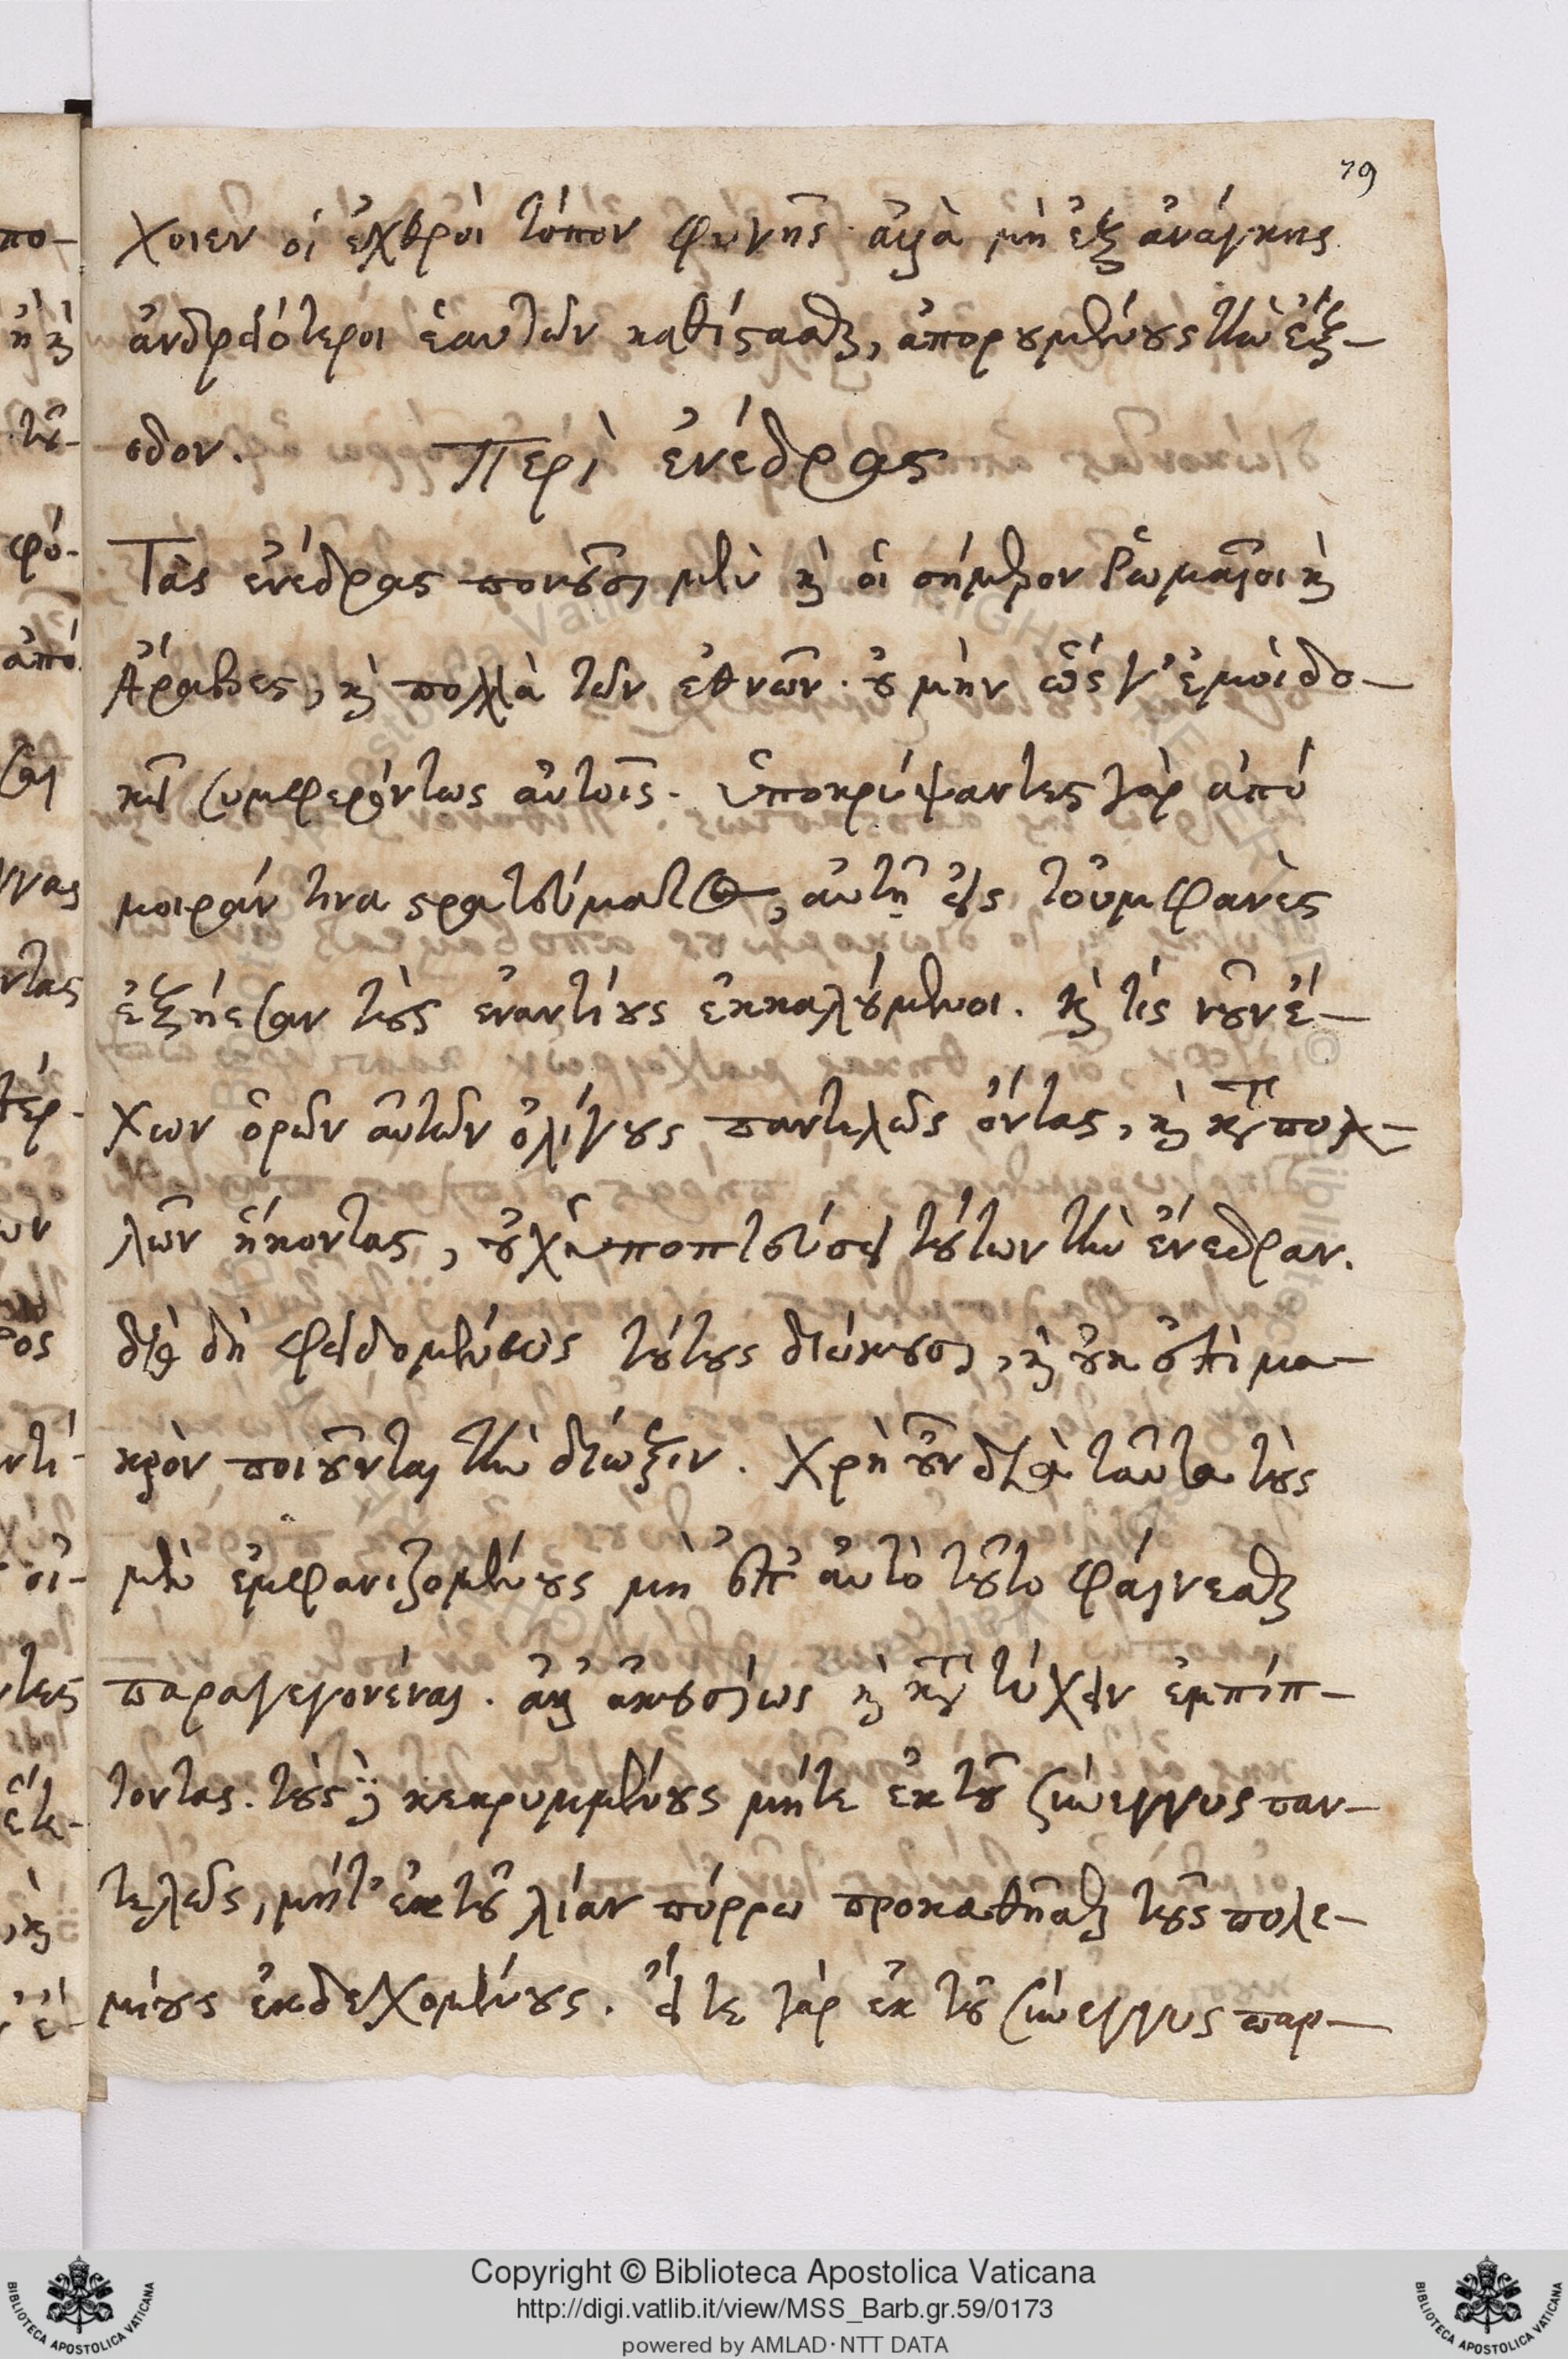 79
χοιεν οἱ ἐχθροὶ τόπον φυγῆς· ἀλλὰ μὴ ἐξ ἀνάγκης
ἀνδρειότεροι ἑαυτῶν καθίστασθαι, ἀπορουμένους τὴν ἔξ-
οδον. Περὶ ἐνέδρας
Τὰς ἐνέδρας ποιοῦσι μὲν καὶ οἱ σήμερον Ῥωμαῖοι καὶ
Ἄραβες, καὶ πολλὰ τῶν ἐθνῶν· οὐ μὴν ὥς γ' ἐμοὶ δο-
κεῖ συμφερόντως αὐτοῖς. ὑποκρύψαντες γὰρ ἀπό
μοιράν τινα στρατεύματος, αὐτῇ εἰς τοὐμφανὲς
ἐξήεσαν τοὺς ἐναντίους ἐκκαλούμενοι. καὶ τίς νοῦν ἔ-
χων ὁρῶν αὐτῶν ὀλίγους παντελῶς ὄντας, καὶ κατὰ πολ-
λῶν ἥκοντας, οὐχ ὑποπτεύσει τούτων τὴν ἔνεδραν.
διὸ δὴ φειδομένως τούτους διώκουσι, καὶ οὐκ ἐπὶ μα-
κρὸν ποιοῦνται τὴν δίωξιν. Χρὴ οὖν διὰ ταῦτα τοὺς
μὲν ἐμφανιζομένους μὴ ἐπ' αὐτὸ τοῦτο φαίνεσθαι
παραγεγονέναι. ἀλλ' ἀκουσίως καὶ κατὰ τύχην ἐμπίπ-
τοντας. τοὺς δὲ κεκρυμμένους μήτε ἐκ τοῦ σύνεγγυς παν-
τελῶς, μήτ' ἐκ τοῦ λίαν πόρρω προκαθῆσθαι τοὺς πολε-
μίους ἐκδεχομένους. εἴ τε γὰρ ἐκ τοῦ σύνεγγυς παρ-
Copyright © Biblioteca Apostolica Vaticana
http://digi.vatlib.it/view/MSS_Barb.gr.59/0173
powered by AMLAD·NTT DATA
BIBLIOTECA APOSTOLICA VATICANA
BIBLIOTECA APOSTOLICA VATICANA